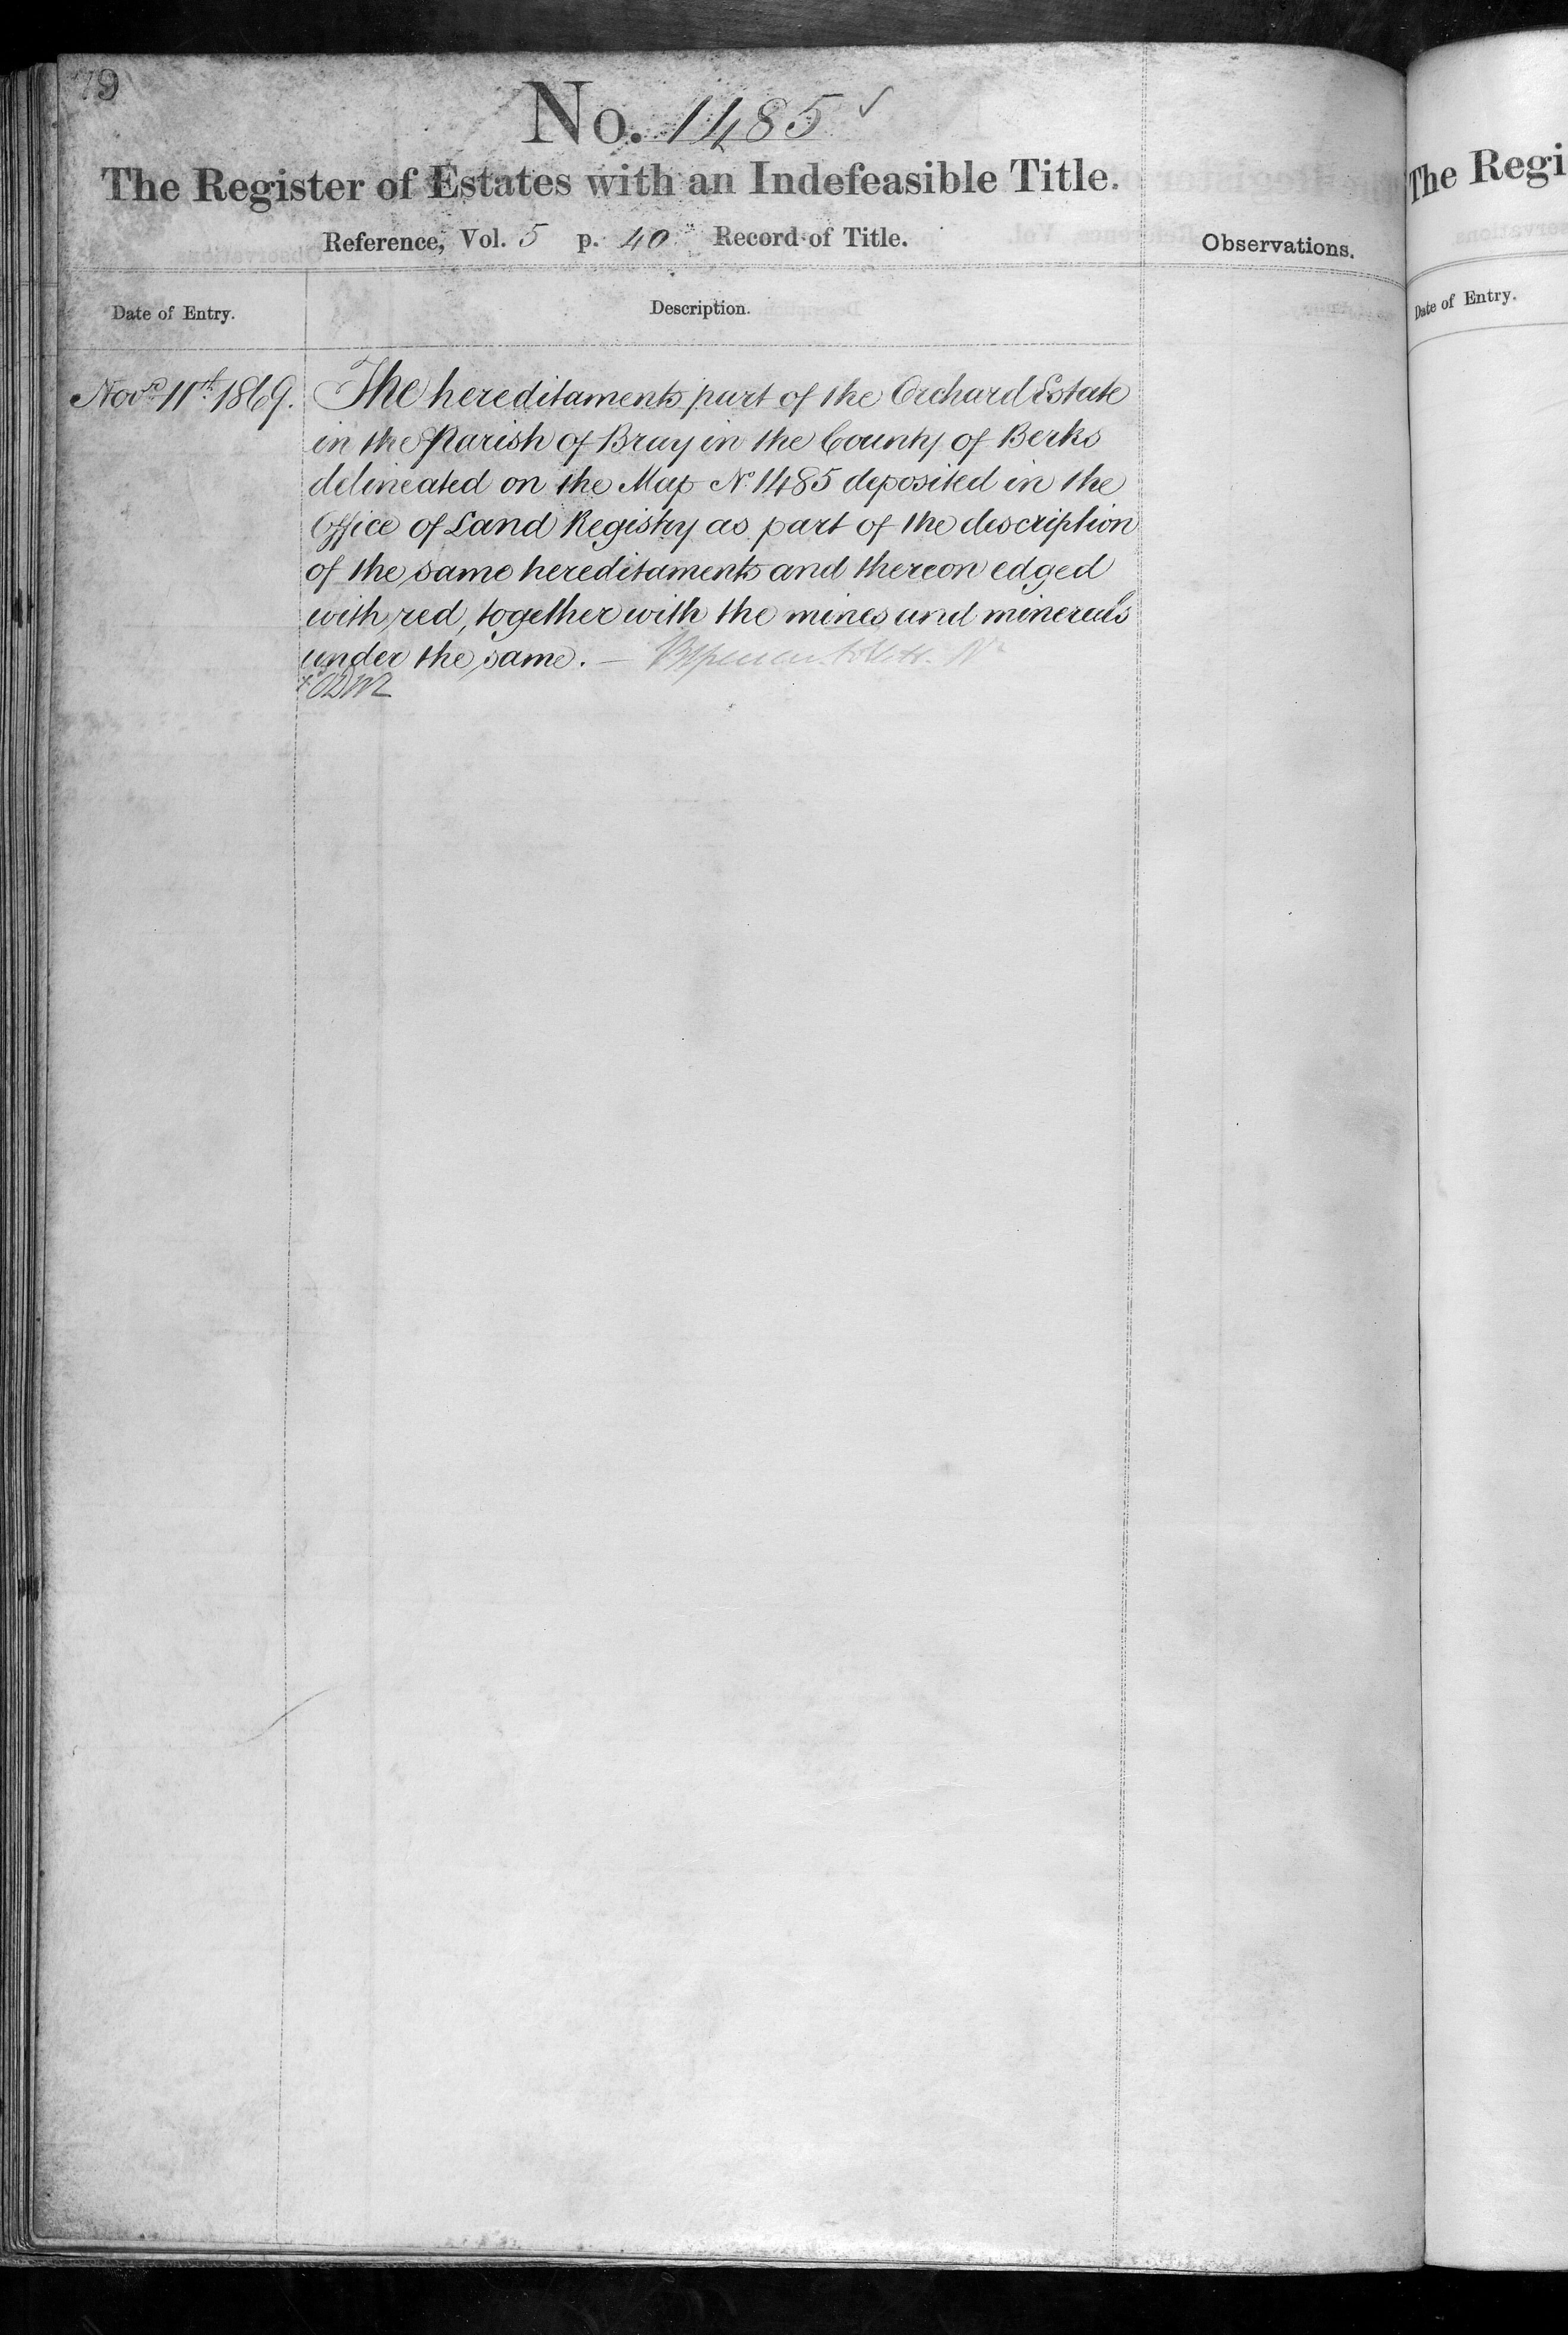 79
No. 1485 ✓
The Register of Estates with an Indefeasible Title.
Reference, Vol. 5 p. 40 Record of Title.
Observations.
Date of Entry.
Description.
Novr. 11th. 1869.
The hereditaments part of the Orchard Estate
in the Parish of Bray in the County of Berks
delineated on the Map No. 1485 deposited in the
Office of Land Registry as part of the description
of the same hereditaments and thereon edged
with red, together with the mines and minerals
under the same. —
The Regi
Date of Entry.